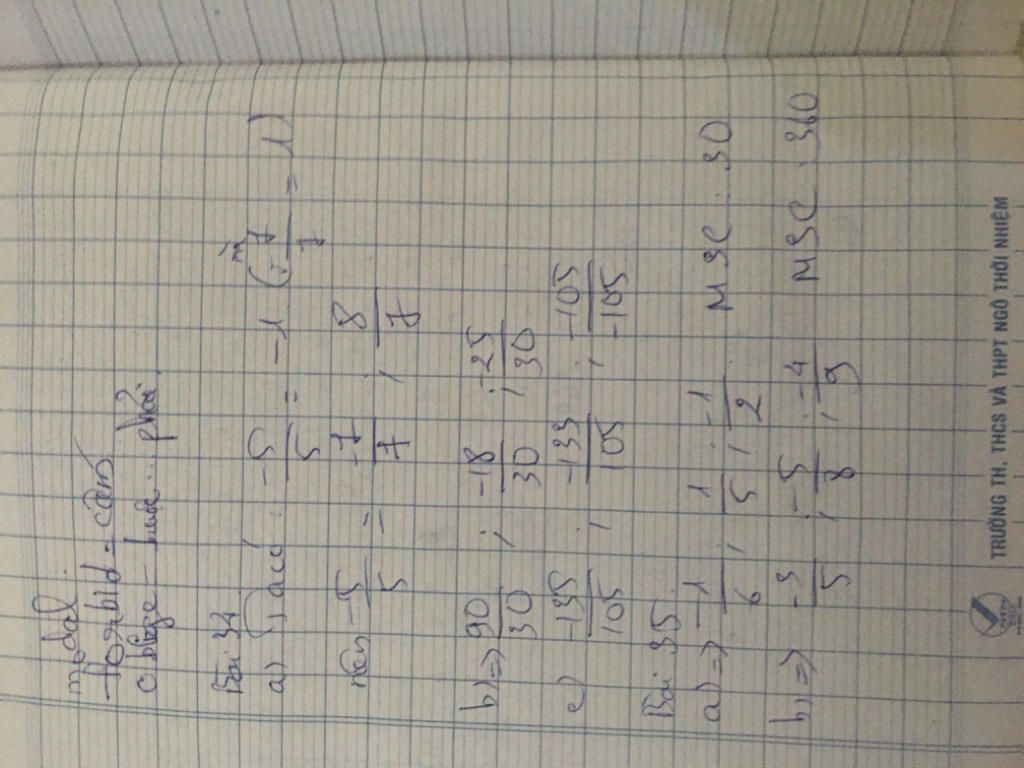 modal
forbid = cấm
oblige = buộc.. phải.
Bài 34
a) Ta có: -5/5 = -1 (mà -7/7 = -1)
nên -5/5 = -7/7 ; 8/7
b) => 90/30 ; -18/30 ; -25/30
c) -135/105 ; -133/105 ; -105/-105
Bài 35.
a) => -1/6 ; 1/5 ; -1/2 MSC: 30
b) => -3/5 ; -5/8 ; -4/9 MSC: 360
TRƯỜNG TH, THCS VÀ THPT NGÔ THỜI NHIỆM